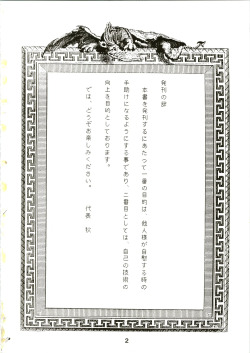 発刊の辞
本書を発刊するにあたって一番の目的は、殿人様が自慰する時の
手助けになるようにする事であり、二番目としては、自己の技術の
向上を目的としております。
では、どうぞお楽しみください。
代表
2